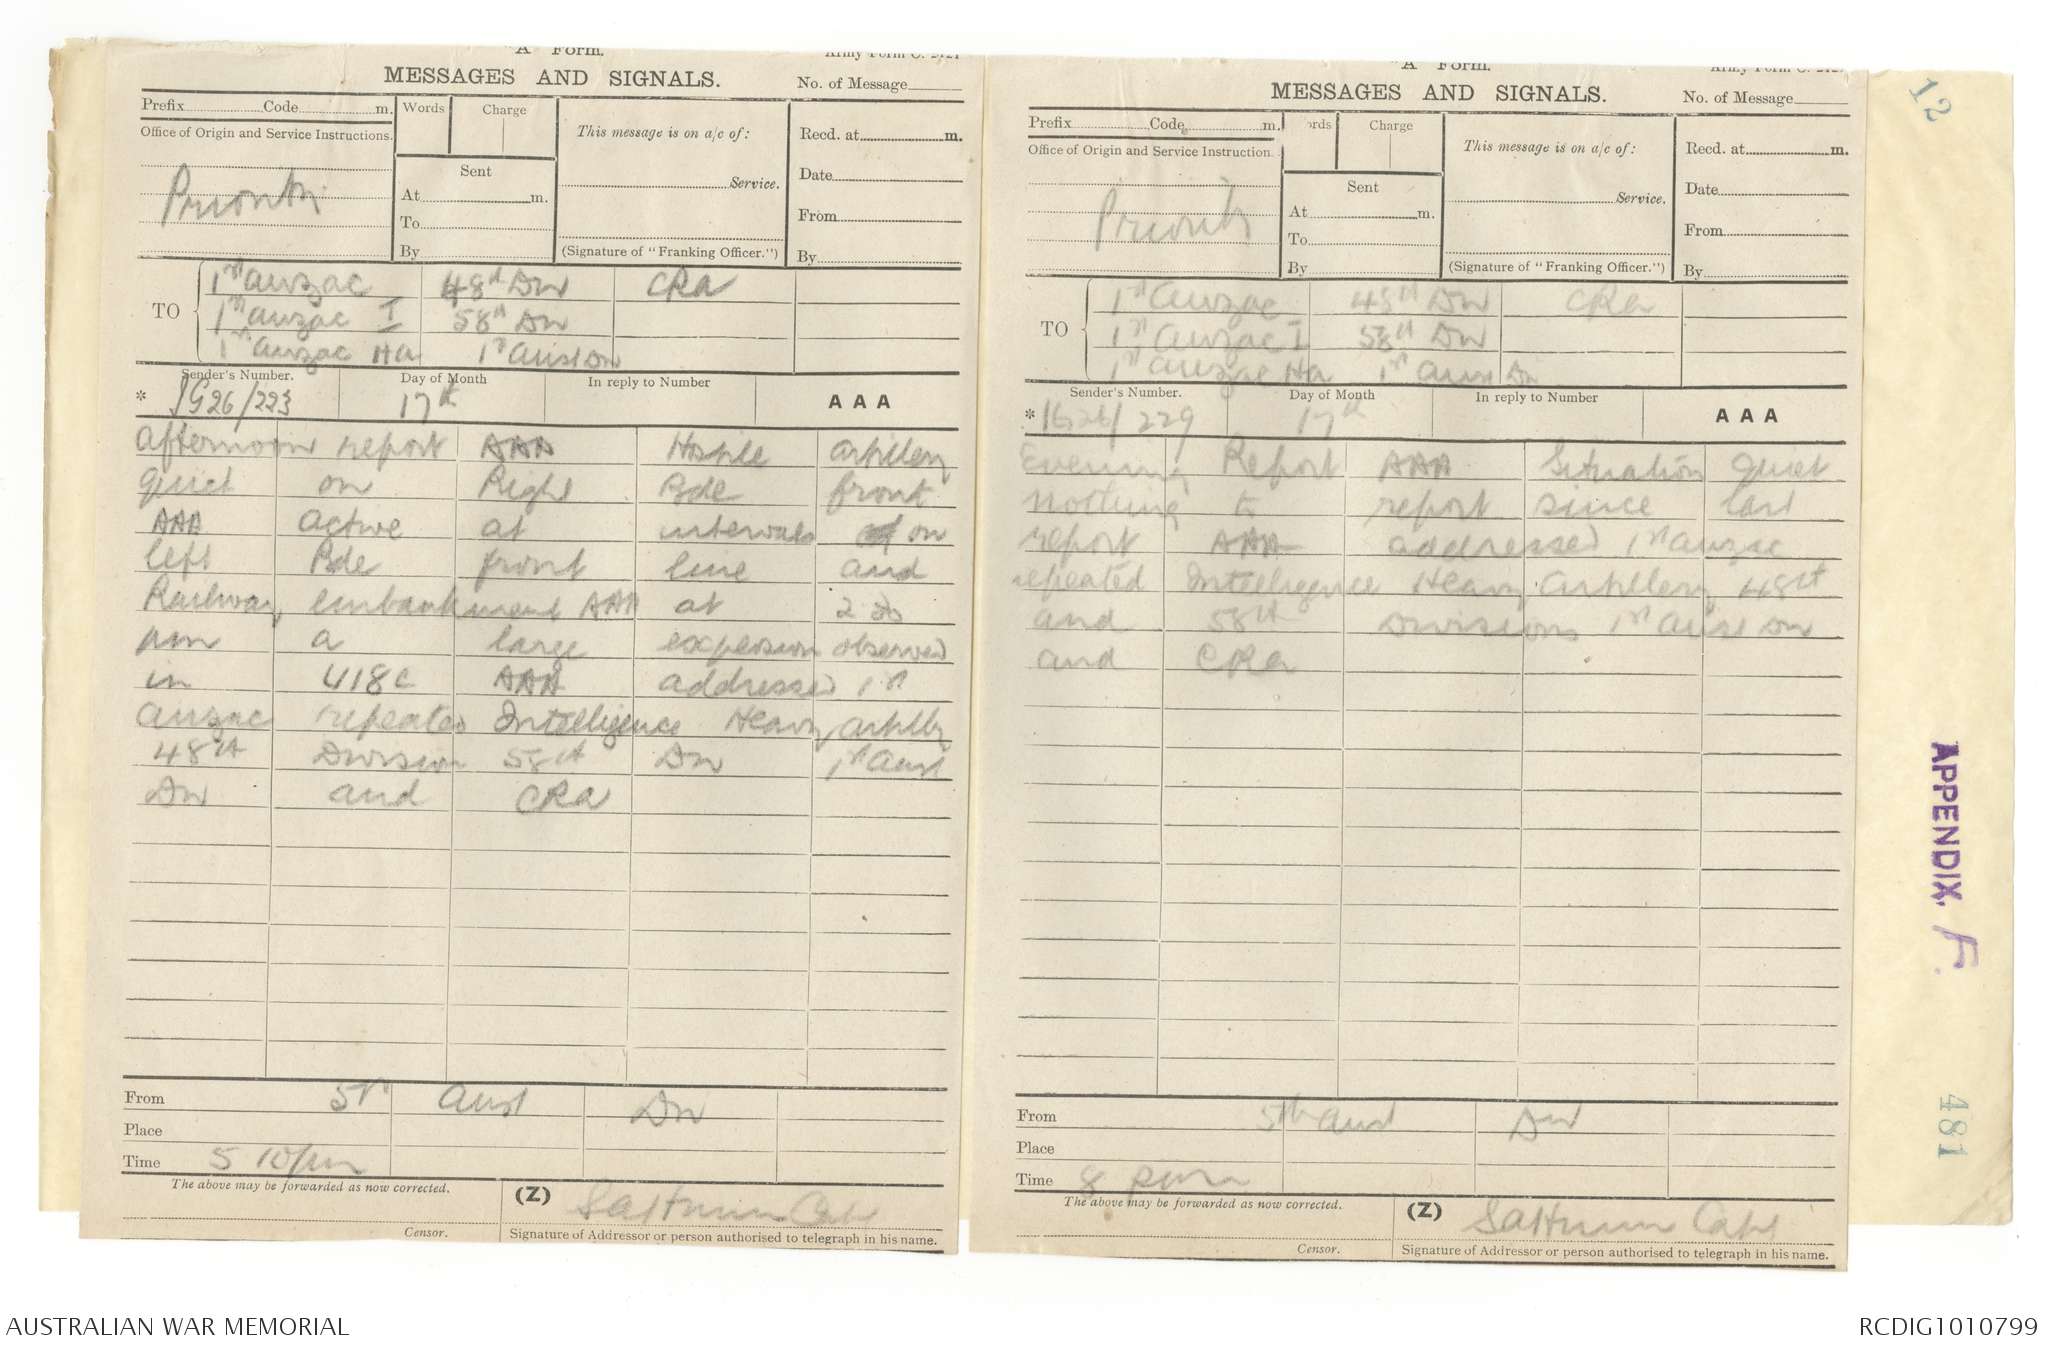 "A" Form.
Army Form C. 2121
MESSAGES AND SIGNALS.
No. of Message
Prefix Code m.
Words Charge
This message is on a/c of:
Recd. at m.
Office of Origin and Service Instructions.
Priority
Sent
Service.
Date
At m.
From
To
By
(Signature of "Franking Officer.")
By
TO
1st Anzac 48th Div CRA
1st Anzac I 58th Div
1st Anzac HA 1st Aust Div
Sender's Number. Day of Month In reply to Number
* SG26/223 17th AAA
Afternoon report AAA Hostile artillery
quiet on Right Bde front
AAA active at intervals on
left Bde front line and
Railway embankment AAA at 2 30
pm a large explosion observed
in 418c AAA addressed 1st
Anzac repeated Intelligence Heavy Artillery
48th Division 58th Div 1st Aust
Div and CRA
From 5th Aust Div
Place
Time 5 10 pm
The above may be forwarded as now corrected.
(Z)
Capt
Censor.
Signature of Addressor or person authorised to telegraph in his name.
"A" Form.
Army Form C. 2121
MESSAGES AND SIGNALS.
No. of Message
Prefix Code m.
ords Charge
This message is on a/c of:
Recd. at m.
Office of Origin and Service Instruction
Priority
Sent
Service.
Date
At m.
From
To
By
(Signature of "Franking Officer.")
By
TO
1st Anzac 48th Div CRA
1st Anzac I 58th Div
1st Anzac HA 1st Aust Div
Sender's Number. Day of Month In reply to Number
* /229 17th AAA
Evening Report AAA Situation quiet
nothing to report since last
report AAA addressed 1st Anzac
repeated Intelligence Heavy Artillery 48th
and 58th Divisions 1st Aust Div
and CRA
From 5th Aust Div
Place
Time 8 pm
The above may be forwarded as now corrected.
(Z)
Capt
Censor.
Signature of Addressor or person authorised to telegraph in his name.
12
APPENDIX. F.
481
AUSTRALIAN WAR MEMORIAL
RCDIG1010799